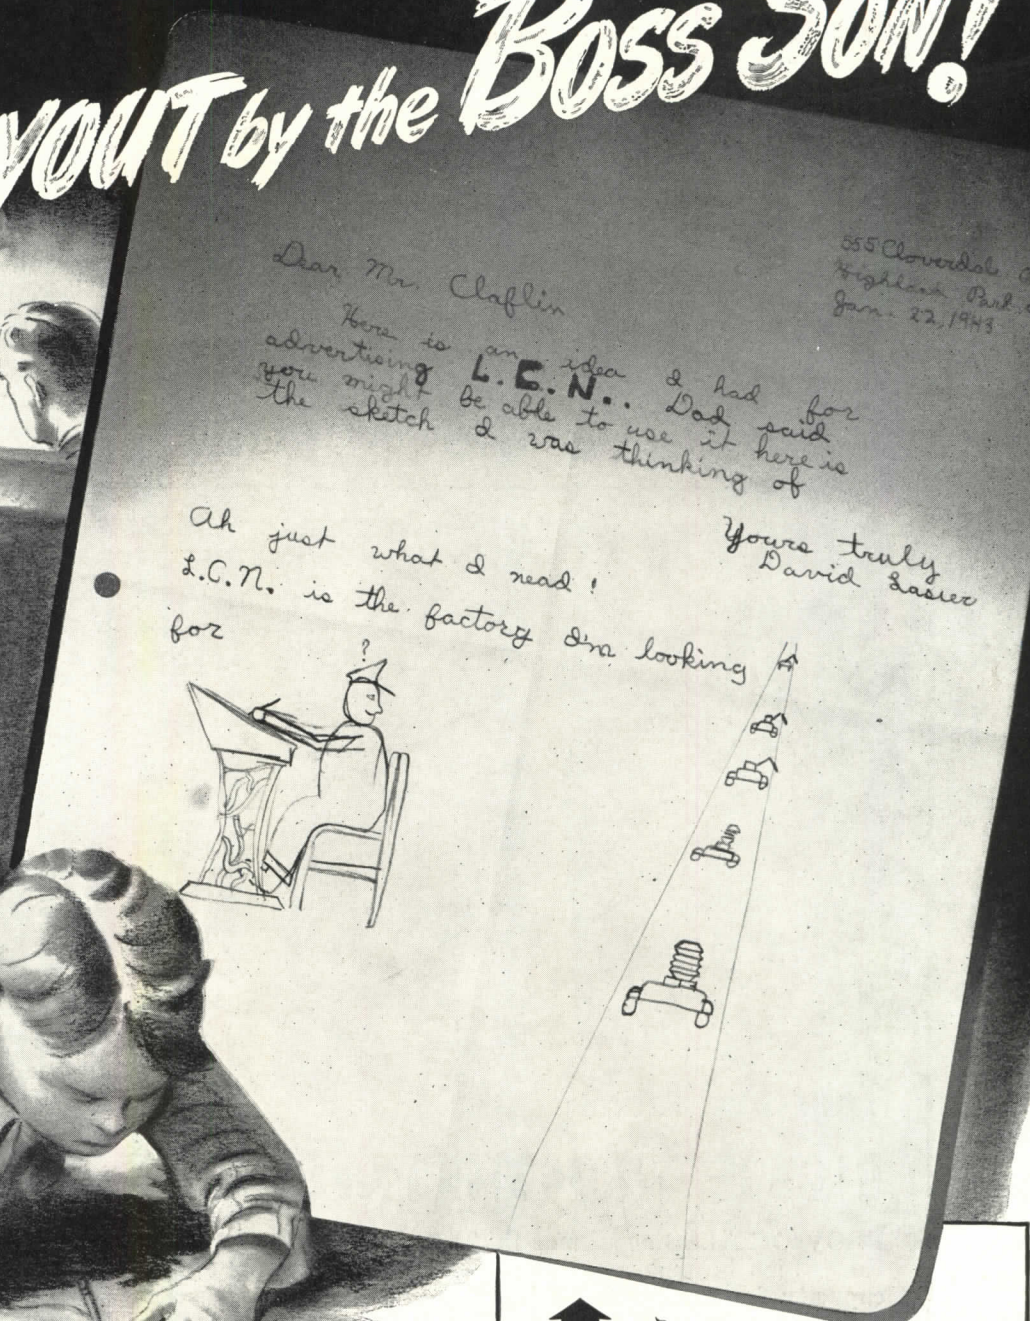 YOUT by the BOSS SON!
555 Cloverdale
Highland Park
Jan. 22, 1943
Dear Mr. Claflin
Here is an idea I had for
advertising L.C.N.. Dad said
you might be able to use it here is
the sketch I was thinking of
Yours truly
David Lasier
Ah just what I need!
L.C.N. is the factory I'm looking
for
?